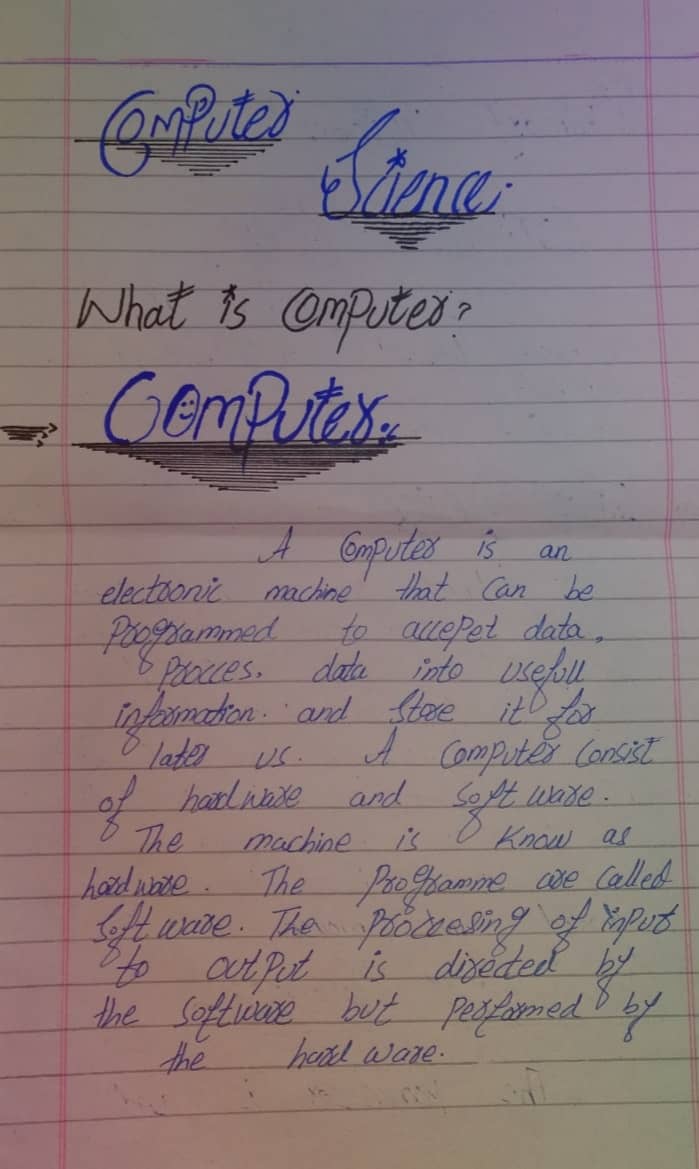 Computer
Science:
What is Computer?
Computer:
A Computer is an
electronic machine that can be
Programmed to accepet data,
Procces. data into usefull
information. and Store it for
later us. A Computer Consist
of hardware and soft ware.
The machine is Know as
hardware. The Programme are called
Soft ware. The Proccesing of input
to output is directed by
the software but performed by
the hard ware.